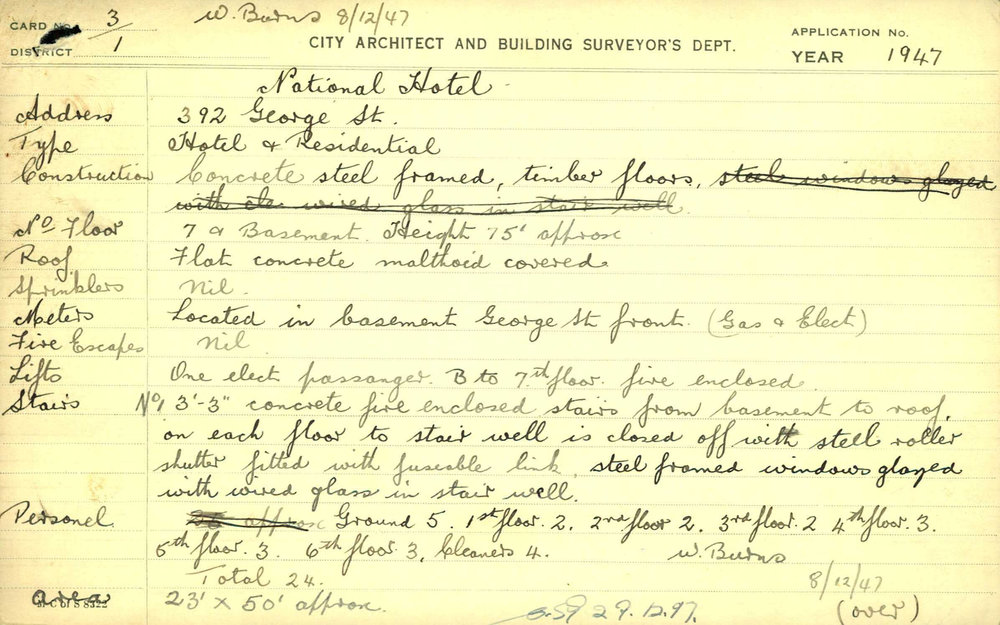 CARD No. 3 W. Burns 8/12/47 APPLICATION No.
DISTRICT 1 CITY ARCHITECT AND BUILDING SURVEYOR'S DEPT. YEAR 1947
National Hotel
Address 392 George St.
Type Hotel & Residential
Construction Concrete steel framed, timber floors, steel windows glazed
with wired glass in stair well
No Floor 7 & Basement. Height 75' approx
Roof Flat concrete malthoid covered
Sprinklers Nil.
Meters Located in basement George St front. (Gas & Elect)
Fire Escapes Nil
Lifts One elect passanger. B to 7th floor. fire enclosed.
Stairs No1 3'-3" concrete fire enclosed stairs from basement to roof,
on each floor to stair well is closed off with steel roller
shutter fitted with fuseable link. steel framed windows glazed
with wired glass in stair well.
Personel approx Ground 5. 1st floor. 2, 2nd floor 2. 3rd floor. 2 4th floor. 3.
5th floor. 3. 6th floor 3, Cleaners 4. W. Burns
Total 24. 8/12/47
area 23' x 50' approx. (over)
M C of S 8322
29.12.97.